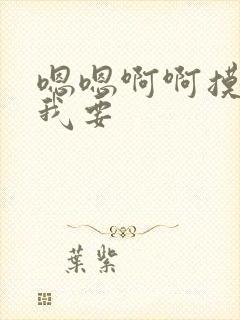 嗯嗯啊啊摸
我要
葉紫